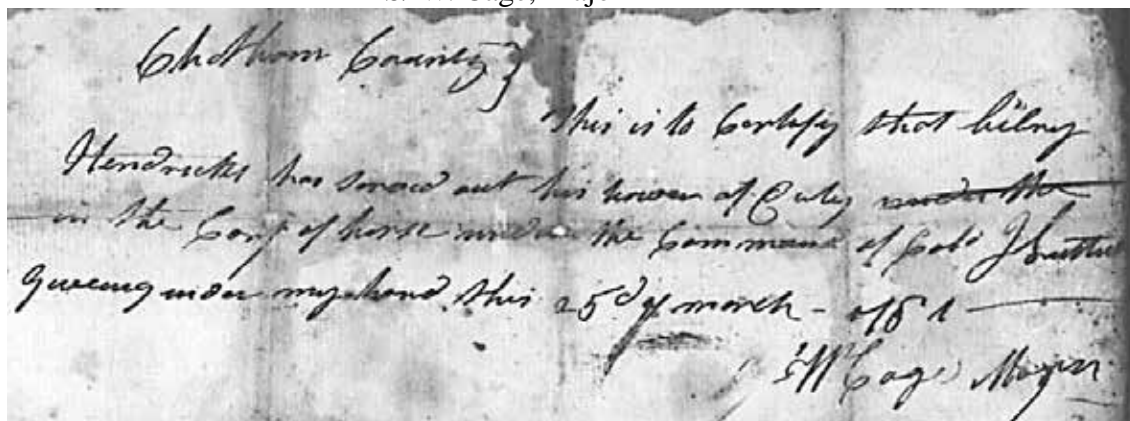 Chatham County}
This is to Certify that
Hendricks has served out his tower of Duty under the
in the Corps of horse under the Command of Colo
under my hand this 25d of march - 1781
Wm Cage Major